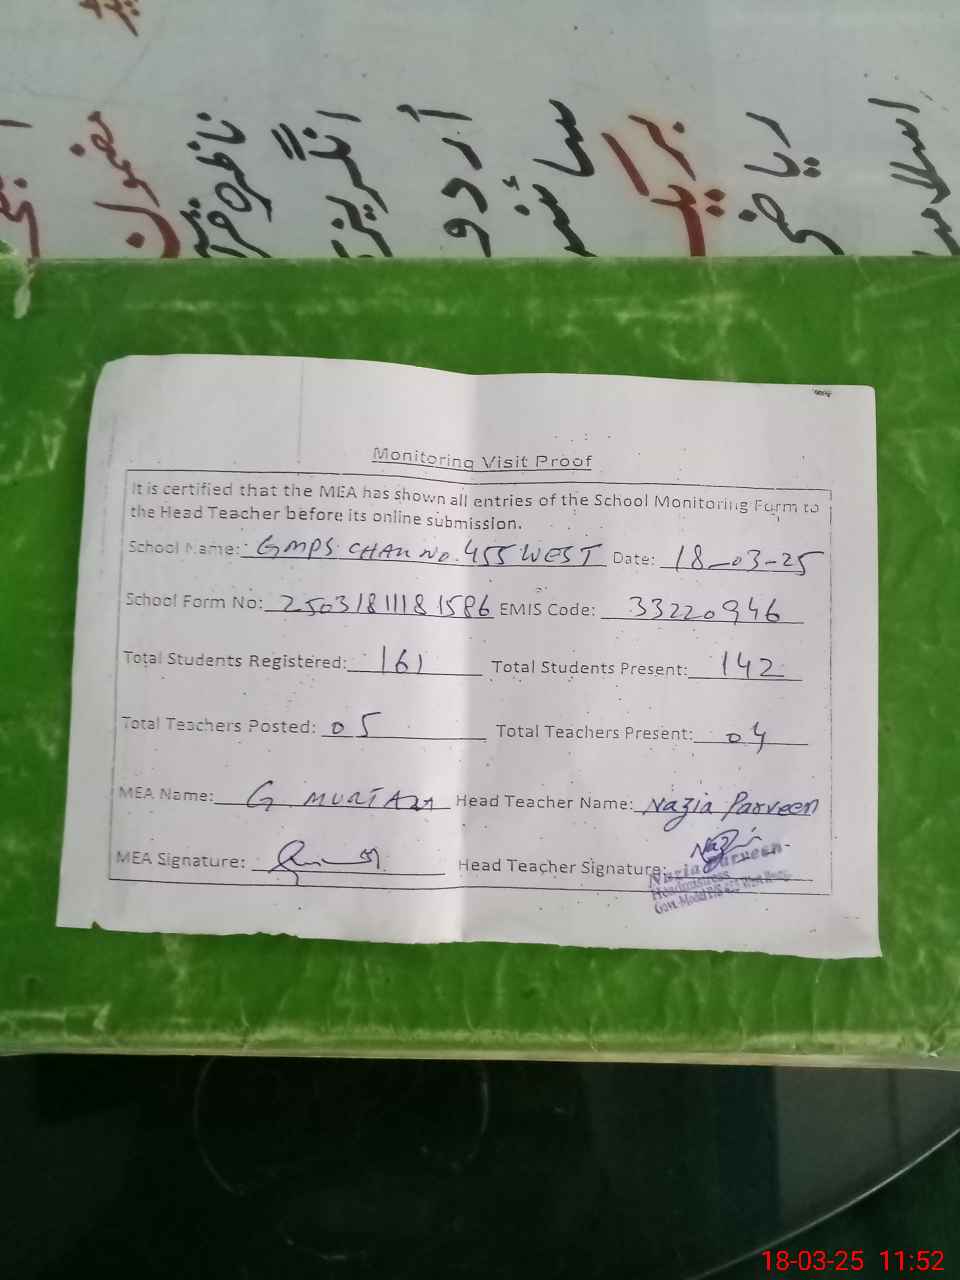 مضمون
ناظرہ
انگریزی
اردو
سائنس
بریک
ریاضی
Monitoring Visit Proof
It is certified that the MEA has shown all entries of the School Monitoring Form to
the Head Teacher before its online submission.
School Name: GMPS CHAK NO. 455 WEST Date: 18-03-25
School Form No: 25031811181586 EMIS Code: 33220946
Total Students Registered: 161 Total Students Present: 142
Total Teachers Posted: 05 Total Teachers Present: 04
MEA Name: G. MURTAZA Head Teacher Name: Nazia Parveen
MEA Signature: Head Teacher Signature:
Nazia Parveen
Headmistress
Govt. Model P/S 455 West
18-03-25 11:52